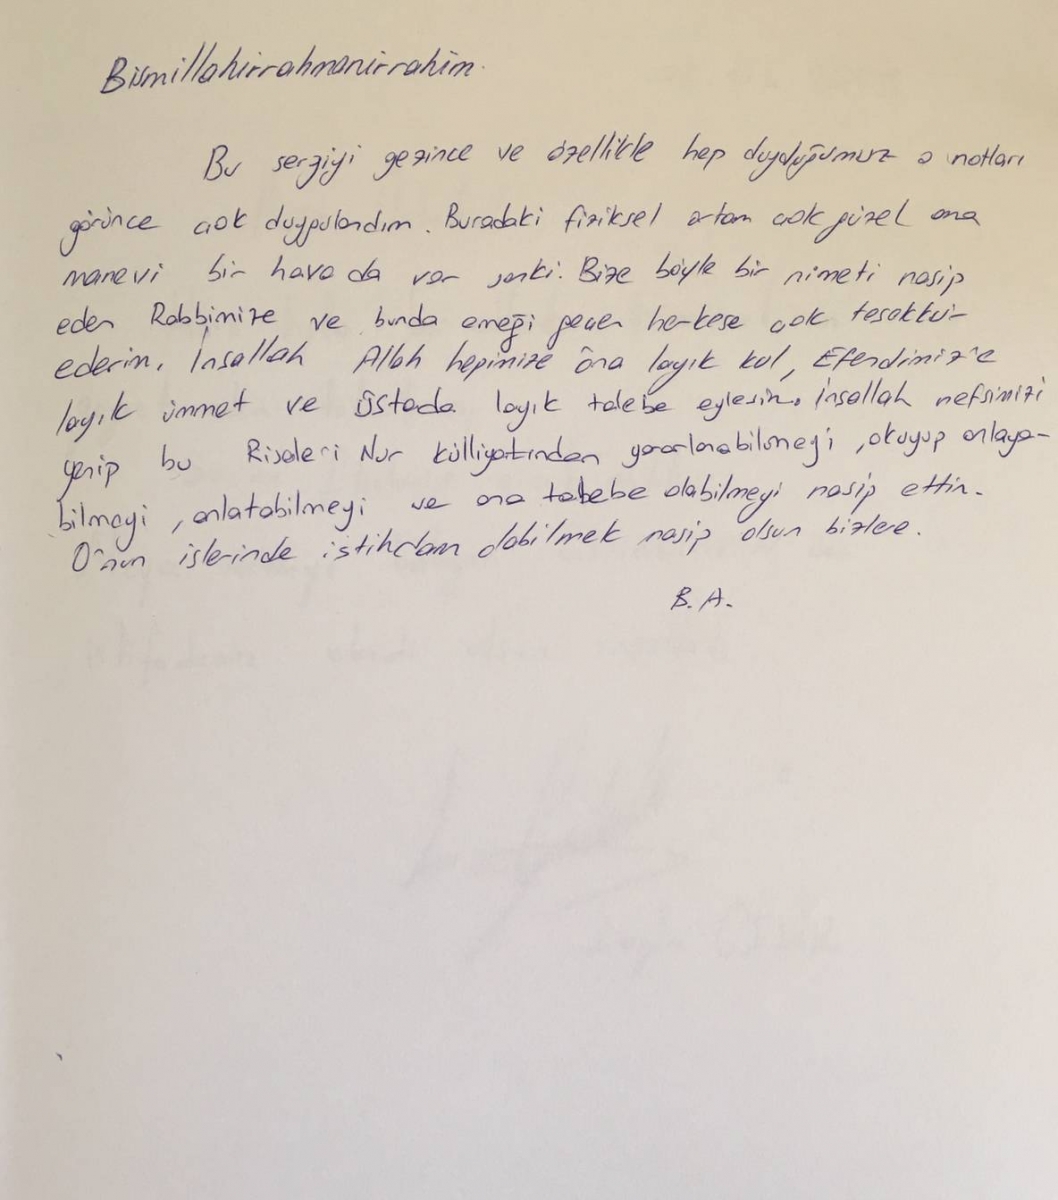 Bismillahirrahmanirrahim.
Bu sergiyi gezince ve özellikle hep duyduğumuz o notları
görünce çok duygulandım. Buradaki fiziksel ortam çok güzel ama
manevi bir hava da var sanki. Bize böyle bir nimeti nasip
eden Rabbimize ve bunda emeği geçen herkese çok teşekkür
ederim. İnşallah Allah hepimize Ona layık kul, Efendimiz'e
layık ümmet ve Üstada layık talebe eylesin. İnşallah nefsimizi
yenip bu Risaleri Nur külliyatından yararlanabilmeyi, okuyup anlaya-
bilmeyi, anlatabilmeyi ve ona talebe olabilmeyi nasip ettin.
O'nun işlerinde istihdam olabilmek nasip olsun bizlere.
B. A.